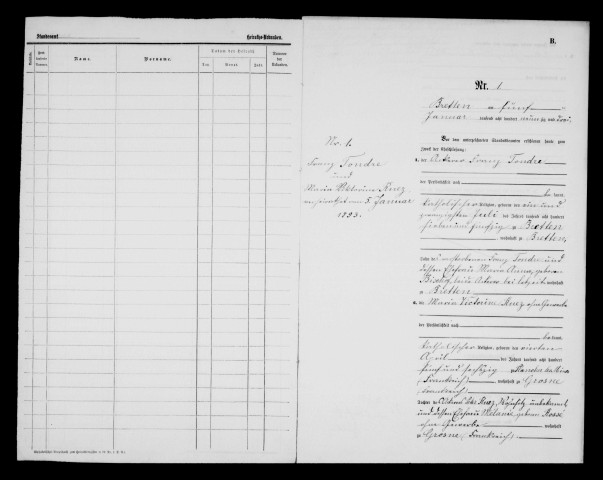 Standesamt
Heiraths-Urkunden.
Name.
Vorname.
Datum der Heirath
Tag
Monat.
Jahr.
Nummer
der
Urkunden.
B.
Nr. 1
Bretten am fünf
Januar tausend acht hundert neunzig und drei
Vor dem unterzeichneten Standesbeamten erschienen heute zum
Zweck der Eheschließung:
1. der Ackerer Franz Tondre
der Persönlichkeit nach
be kannt,
katholischer Religion, geboren den ein und
zwanzigsten Juli des Jahres tausend acht hundert
zu Bretten
wohnhaft zu Bretten,
Sohn des verstorbenen Franz Tondre und
dessen Ehefrau Maria Anna, geboren
wohnhaft
zu Bretten
2. die Maria Victorine Ruez ohne Gewerbe
der Persönlichkeit nach
be kannt,
katholischer Religion, geboren den vierten
April des Jahres tausend acht hundert
fünf und sechzig zu
(Frankreich) wohnhaft zu Grosne
(Frankreich)
Tochter des Ruez, unbekannt
und dessen Ehefrau Melanie, geboren Rossé
ohne Gewerbe wohnhaft
zu Grosne (Frankreich)
No. 1.
Franz Tondre
und
Maria Viktorine Ruez
5. Januar
1893.